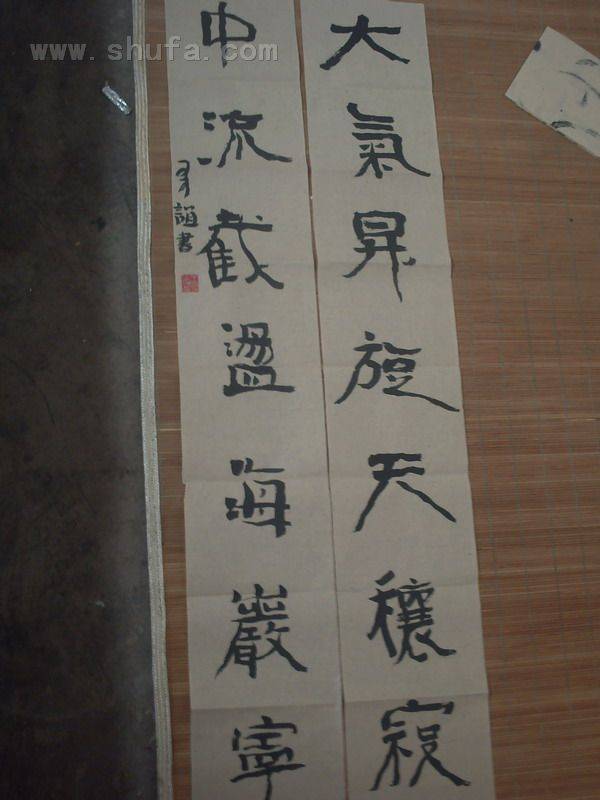 大氣昇旋天穰寂
中流截盪海巖寧
韻書
www.shufa.com